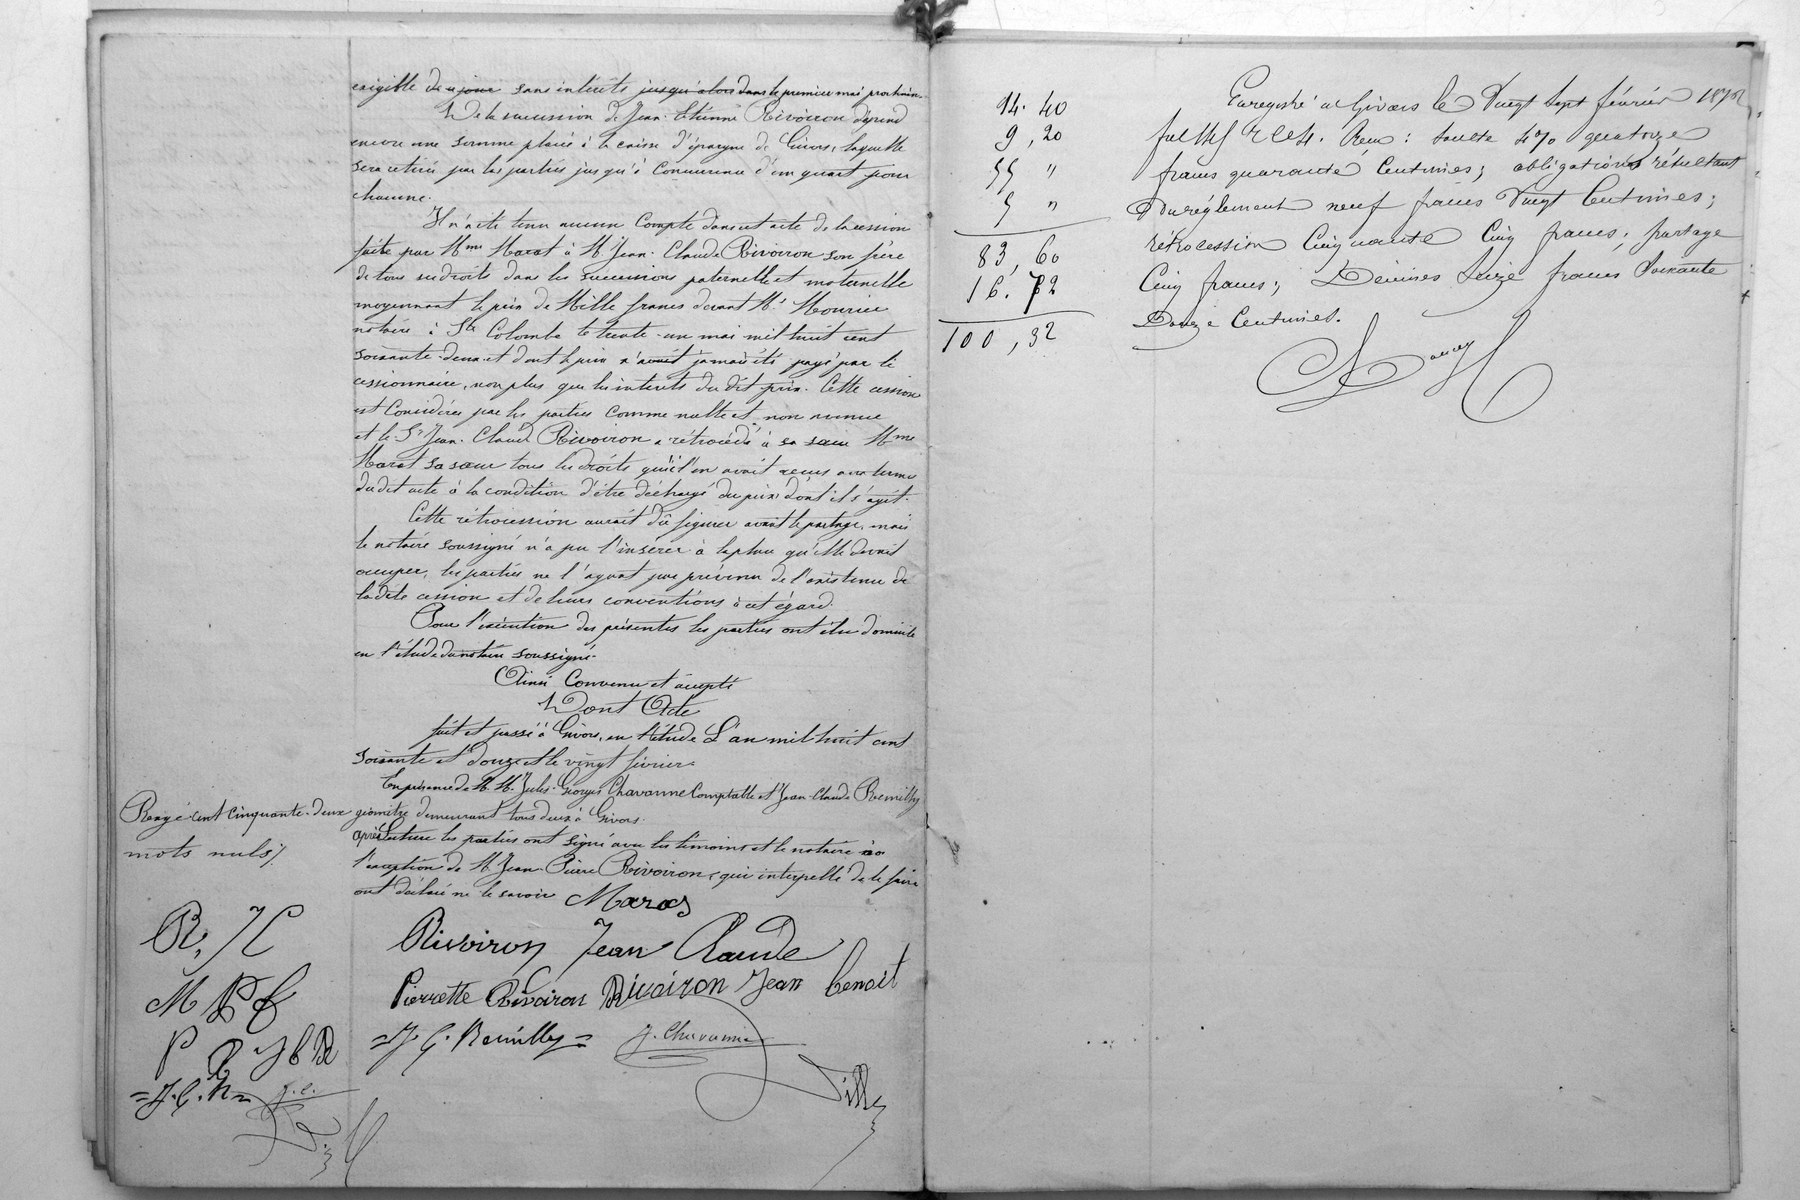 exigible de ce jour sans intérêts jusqu'alors dans le premier mai prochain.
De la succession de Jean-Etienne Rivoiron dépend
encore une somme placée à la caisse d'épargne de Givors, laquelle
sera retirée par les parties jusqu'à concurrence d'un quart pour
chacune.
Il n'a été tenu aucun compte dans cet acte de la cession
faite par Mme Maras à M. Jean-Claude Rivoiron son frère
de tous ses droits dans les successions paternelle et maternelle
moyennant le prix de Mille francs devant Me Mourier
notaire à Ste Colombe le trente-un mai mil huit cent
soixante-deux et dont le prix n'avait jamais été payé par le
cessionnaire, non plus que les intérêts du dit prix. Cette cession
est considérée par les parties comme nulle et non avenue
et le Sr Jean-Claude Rivoiron a rétrocédé à sa sœur Mme
Maras sa sœur tous les droits qu'il en avait reçus aux termes
du dit acte à la condition d'être déchargé du prix dont il s'agit.
Cette rétrocession aurait dû figurer avant le partage, mais
le notaire soussigné n'a pu l'insérer à la place qu'elle devait
occuper, les parties ne l'ayant pas prévenu de l'existence de
ladite cession et de leurs conventions à cet égard.
Pour l'exécution des présentes les parties ont élu domicile
en l'étude du notaire soussigné.
Ainsi convenu et accepté
Dont Acte
fait et passé à Givors, en l'étude L'an mil huit cent
soixante et douze et le vingt février.
En présence de M. M. Jules-Georges Chavanne comptable et Jean-Claude Remilly
géomètre demeurant tous deux à Givors.
après lecture les parties ont signé avec les témoins et le notaire à
l'exception de M. Jean-Pierre Rivoiron, qui interpellé de le faire
ont déclaré ne le savoir Maras
Rivoiron Jean Claude
Pierrette Rivoiron Rivoiron Jean benoit
= J. C. Remilly = J. Chavanne
Rayé cent cinquante-deux
mots nuls /.
R, J C
M P R
P R J b R
= J. C. R = J. C.
94. 40
9, 20
55 "
5 "
83, 60
16. 72
100, 32
Enregistré à Givors le Vingt sept février 1872
Reçu : soulte 4% quatorze
francs quarante Centimes ; obligations résultant
du règlement neuf francs Vingt Centimes ;
rétrocession Cinquante Cinq francs ; partage
Cinq francs ; Décimes Seize francs Soixante
Douze Centimes.